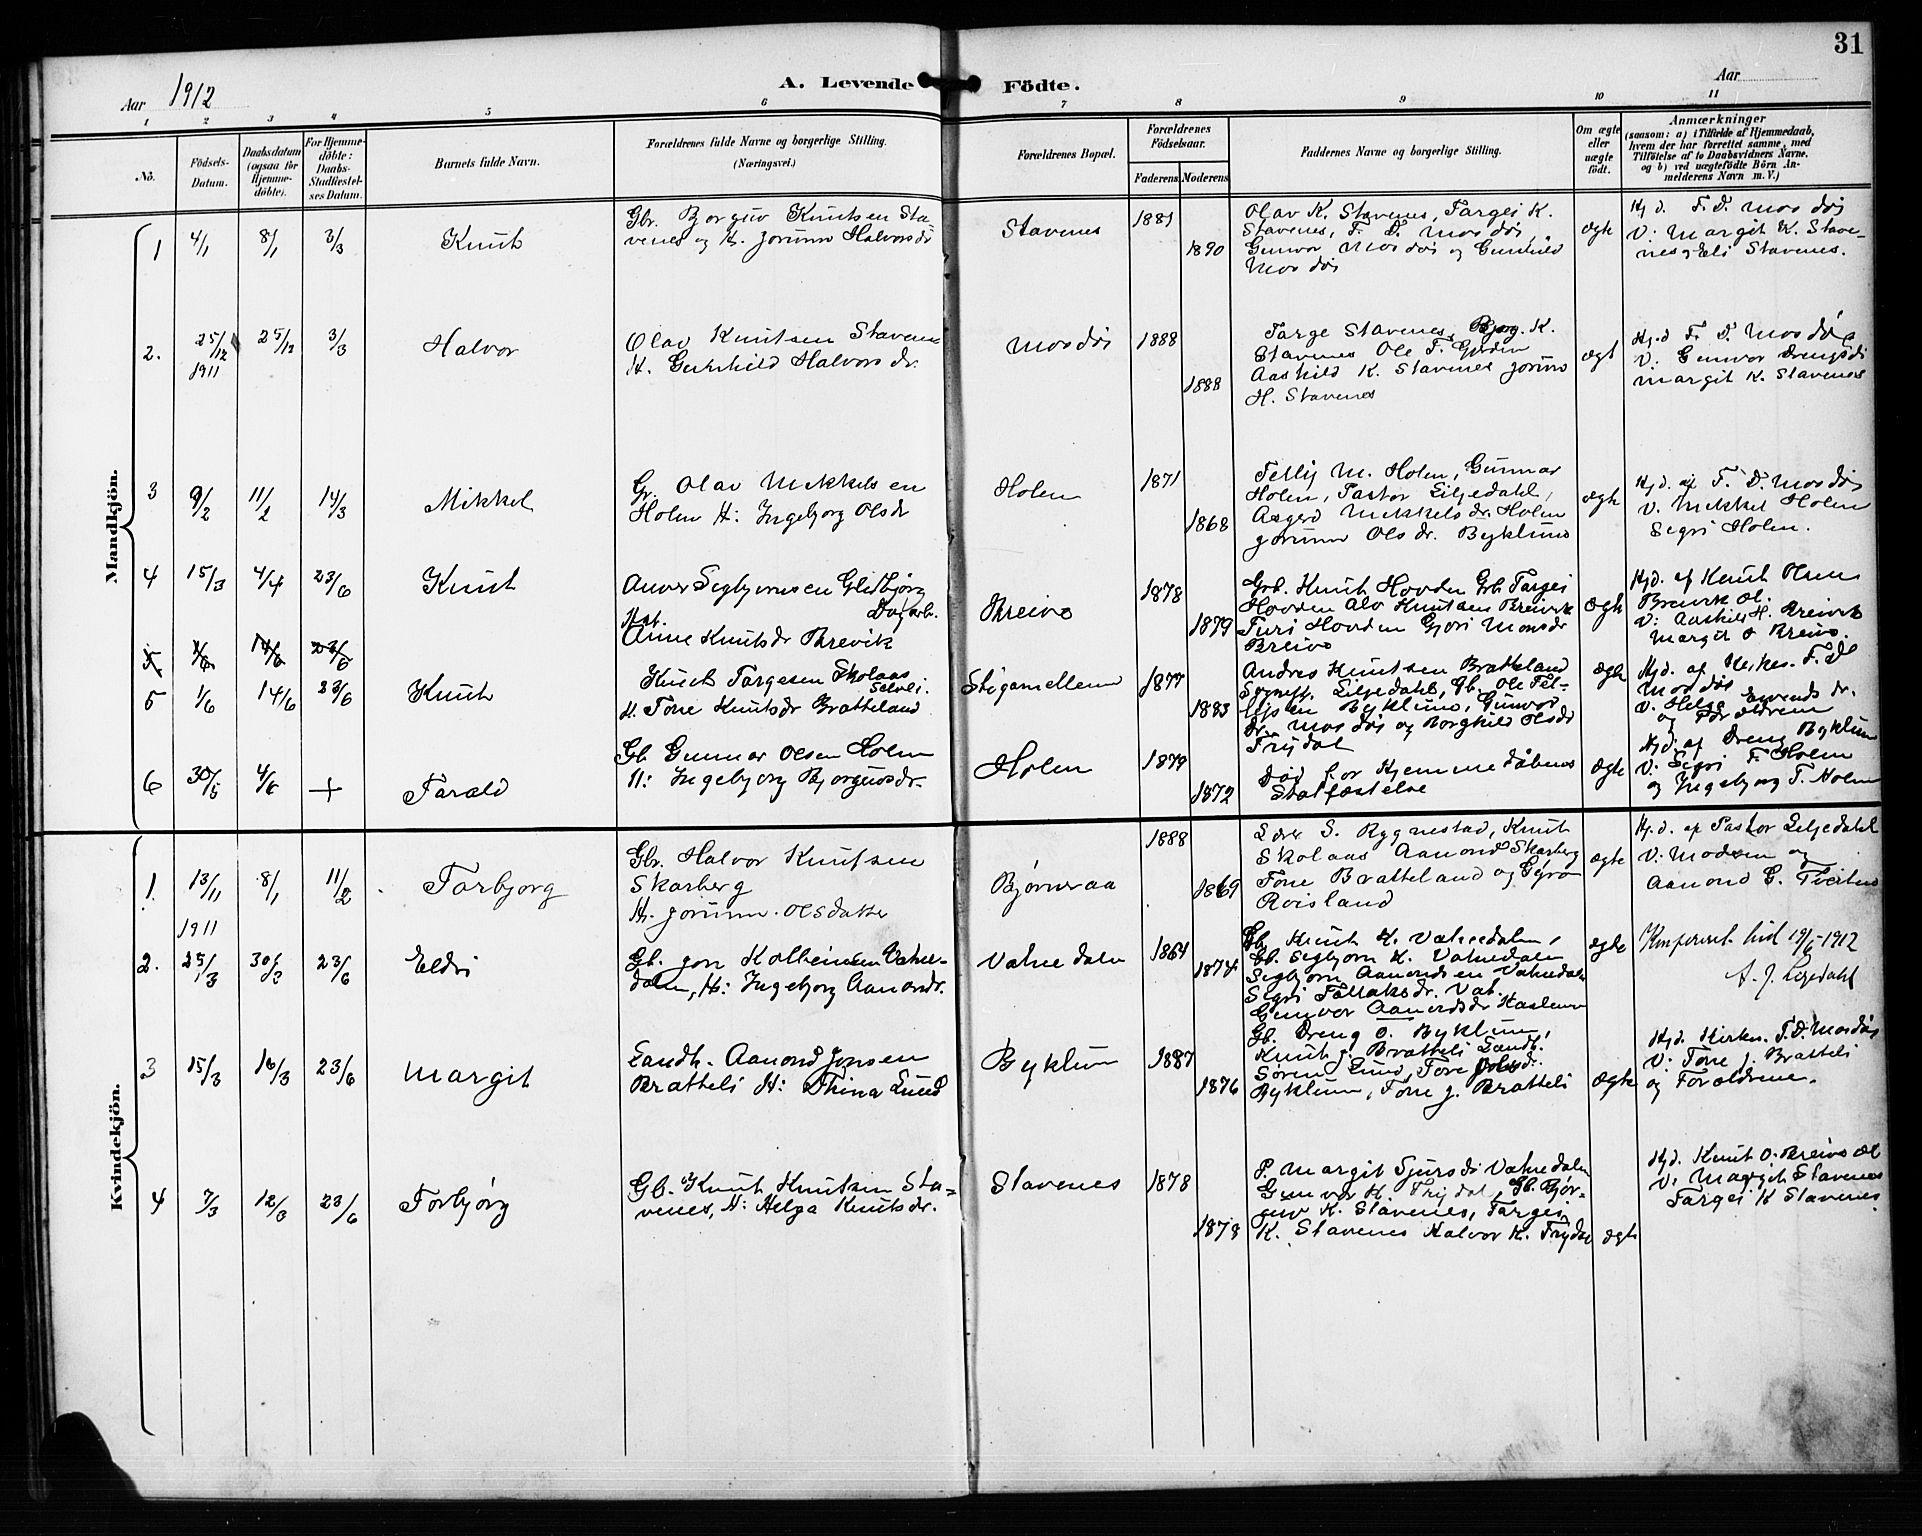 31
Aar 1912
A. Levende Födte.
Aar
1 2 3 4 5 6 7 8 9 10 11
No.
Födsels-Datum.
Daabsdatum (ogsaa for Hjemmedöbte).
For Hjemmedöbte: Daabs-Stadfæstelses Datum.
Barnets fulde Navn.
Forældrenes fulde Navne og borgerlige Stilling.
(Næringsvei.)
Forældrenes Bopæl.
Forældrenes Födselsaar.
Faderens. Moderens.
Faddernes Navne og borgerlige Stilling.
Om ægte eller uægte födt.
Anmærkninger
(saasom: a) i Tilfælde af Hjemmedaab,
hvem der har forrettet samme, med
Tilföielse af to Daabsvidners Navne,
og b) ved uægtefödte Börn An-
melderens Navn m. V.)
Mandkjön.
1 4/1 8/1 3/3 Knut
Gbr. Borguv Knutsen Sta-
venes og H. Jorunn Halvorsdr
Stavenes 1881 1890
Olav K. Stavenes, Targei K.
Stavenes, F. D. Mosdøl,
Gunvor Mosdøl og Gunhild
Mosdøl
ægte
Hj d. F. D. Mosdøl
V: Margit K. Stave-
nes og Eli Stavenes.
2. 25/12 1911 25/12 3/3 Halvor
Olav Knutsen Stavenes
H. Gunhild Halvorsdr.
Mosdøl 1888 1888
Targe Stavenes, Bjorg. K.
Stavenes Ole T. Gjerden
Aashild K. Stavenes Jorunn
H. Stavenes
ægt
Hj.d F. D. Mosdøl
V: Gunvor Drengsdr
Margit K. Stavenes
3 9/2 11/2 14/3 Mikkel
Gr. Olav Mikkelsen
Holen H: Ingebjorg Olsdr
Holen 1871 1868
Tellef M. Holen, Gunnar
Holen, Pastor Liljedahl,
Asgerd Mikkelsdr. Holen
Jorunn Olsdr. Byklum
ægte
Hj d. af F. D. Mosdøl
V. Mikkel Holen
Sigri Holen.
4 15/3 4/4 23/6 Knut
Dagarb.
Anne Knutsdr Brevik
Breive 1878 1879
Grb. Knut Hovden Grb Targei
Hovden Alv Knutsen Breivik
Turi Hovden Gjøri Monsdr
Breive
ægte
Hjd. af Knut Olsen
V: Aashild H. Breivik
Margit O Breive.
5 1/6 14/6 23/6
5 1/6 14/6 23/6 Knut
Knut Targesen Skolaas
Selvei.
H. Tone Knutsdr Bratteland
Stigamellem 1877 1883
Andres Knutsen Bratteland
Sognepr. Liljedahl, Gb. Ole Tel-
lefsen Byklum, Gunvor
dr. Mosdøl og Borghild Olsdr
Trydal
ægte
Hjd. af Kirkes. F. D
Mosdøl
V. Helge Eivends dr.
og Forældrene
6 30/5 4/6 + Tarald
Gb Gunnar Olsen Holen
H: Ingebjorg Bjorguvsdr.
Holen 1879 1872
Død før Hjemmedåbens
Statfæstelse
ægte
Hjd. af Dreng Byklum
V: Sigri T. Holen
og Ingebjorg T. Holen
Kvindekjön.
1. 13/11 1911 8/1 11/2 Torbjorg
Gbr. Halvor Knutsen
Skarberg
H. Jorunn Olsdatter
Bjørneraa 1888 1869
Lærer S. Rygnestad, Knut
Skolaas Aamond Skarberg
Tone Bratteland og Gyro
Roisland
ægte
Hj.d. af Pastor Liljedahl
V: Moderen og
Aamond G. Tveiten
2. 25/3 30/3 23/6 Eldri
Gb. Jon Kolbeinsen Vatne-
dalen, H: Ingebjorg Aamondr.
Vatnedalen 1864 1874
Gb. Knut K. Vatnedalen,
Gb. Sigbjørn K. Vatnedalen
Sigbjorn Aamondsen Vatnedalen
Sigri Tallaksdr. Vat.
Gunvor Aamondsdr Haslemo
ægte
Konfereret hid 19/6-1912
A. J. Liljedahl
3 15/3 16/3 23/6 Margit
Landh. Aamond Jonsen
Bratteli H: Thina Lund
Byklum 1887 1876
Gb. Dreng O. Byklum,
Knut J. Bratteli Landh.
Søren Lund, Tore Olsdr.
Byklum, Tone J. Bratteli
ægte
Hjd. Kirkes. F. D. Mosdøl
V: Tone J. Bratteli
og Forældrene.
4 7/3 12/3 23/6 Torbjørg
Gb. Knut Knutsen Sta-
venes, H: Helga Knutsdr.
Stavenes 1878 1878
P. Margit Sjursdr Vatnedalen
Gunvor H. Trydal, Gb. Bjør-
guv K. Stavenes, Targei
K. Stavenes Halvor K. Trydal
ægte
Hjd. Knut O. Breive al
V: Margit Stavenes
Targei K Stavenes.